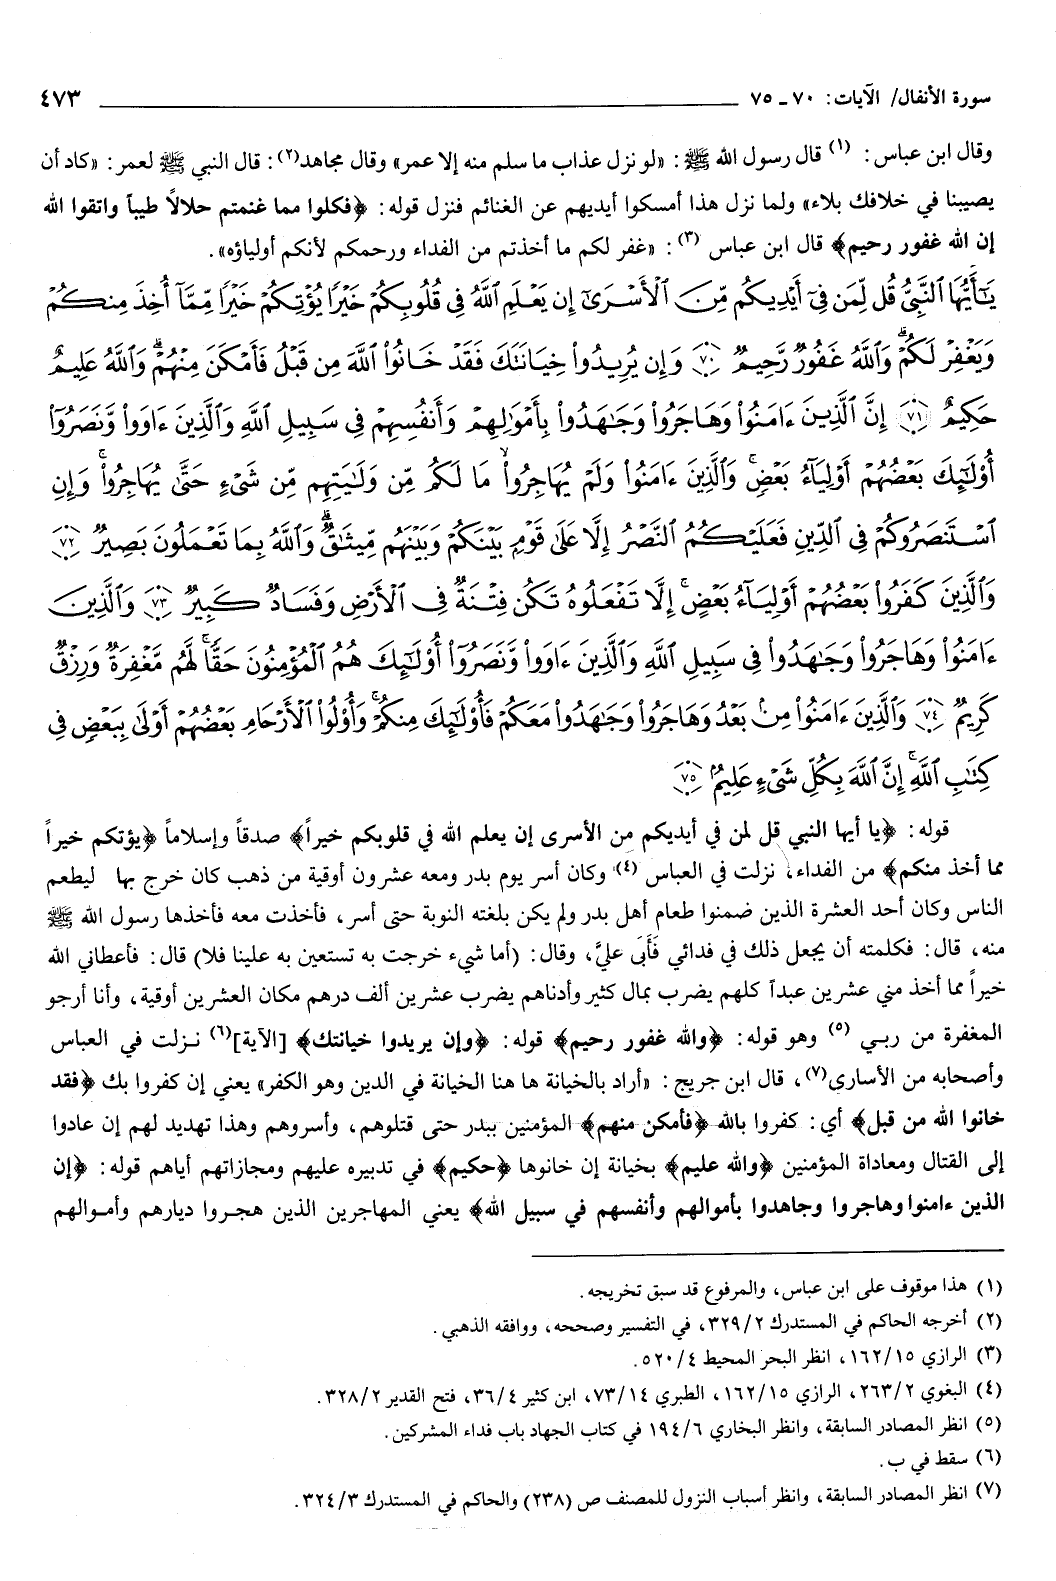 سورة الأنفال/ الآيات: ٧٠ ـ ٧٥ ٤٧٣
وقال ابن عباس: (١) قال رسول الله ﷺ: «لو نزل عذاب ما سلم منه إلا عمر» وقال مجاهد(٢): قال النبي ﷺ لعمر: «كاد أن
يصيبنا في خلافك بلاء» ولما نزل هذا أمسكوا أيديهم عن الغنائم فنزل قوله: ﴿فكلوا مما غنمتم حلالاً طيباً واتقوا الله
إن الله غفور رحيم﴾ قال ابن عباس (٣): «غفر لكم ما أخذتم من الفداء ورحمكم لأنكم أولياؤه».
يَٰٓأَيُّهَا ٱلنَّبِيُّ قُل لِّمَن فِىٓ أَيْدِيكُم مِّنَ ٱلْأَسْرَىٰٓ إِن يَعْلَمِ ٱللَّهُ فِى قُلُوبِكُمْ خَيْرًا يُؤْتِكُمْ خَيْرًا مِّمَّآ أُخِذَ مِنكُمْ
وَيَغْفِرْ لَكُمْ ۗ وَٱللَّهُ غَفُورٌ رَّحِيمٌ ٧٠ وَإِن يُرِيدُوا۟ خِيَانَتَكَ فَقَدْ خَانُوا۟ ٱللَّهَ مِن قَبْلُ فَأَمْكَنَ مِنْهُمْ ۗ وَٱللَّهُ عَلِيمٌ
حَكِيمٌ ٧١ إِنَّ ٱلَّذِينَ ءَامَنُوا۟ وَهَاجَرُوا۟ وَجَٰهَدُوا۟ بِأَمْوَٰلِهِمْ وَأَنفُسِهِمْ فِى سَبِيلِ ٱللَّهِ وَٱلَّذِينَ ءَاوَوا۟ وَّنَصَرُوٓا۟
أُو۟لَٰٓئِكَ بَعْضُهُمْ أَوْلِيَآءُ بَعْضٍ ۚ وَٱلَّذِينَ ءَامَنُوا۟ وَلَمْ يُهَاجِرُوا۟ مَا لَكُم مِّن وَلَٰيَتِهِم مِّن شَىْءٍ حَتَّىٰ يُهَاجِرُوا۟ ۚ وَإِنِ
ٱسْتَنصَرُوكُمْ فِى ٱلدِّينِ فَعَلَيْكُمُ ٱلنَّصْرُ إِلَّا عَلَىٰ قَوْمٍۭ بَيْنَكُمْ وَبَيْنَهُم مِّيثَٰقٌ ۗ وَٱللَّهُ بِمَا تَعْمَلُونَ بَصِيرٌ ٧٢
وَٱلَّذِينَ كَفَرُوا۟ بَعْضُهُمْ أَوْلِيَآءُ بَعْضٍ ۚ إِلَّا تَفْعَلُوهُ تَكُن فِتْنَةٌ فِى ٱلْأَرْضِ وَفَسَادٌ كَبِيرٌ ٧٣ وَٱلَّذِينَ
ءَامَنُوا۟ وَهَاجَرُوا۟ وَجَٰهَدُوا۟ فِى سَبِيلِ ٱللَّهِ وَٱلَّذِينَ ءَاوَوا۟ وَّنَصَرُوٓا۟ أُو۟لَٰٓئِكَ هُمُ ٱلْمُؤْمِنُونَ حَقًّا ۚ لَّهُم مَّغْفِرَةٌ وَرِزْقٌ
كَرِيمٌ ٧٤ وَٱلَّذِينَ ءَامَنُوا۟ مِنۢ بَعْدُ وَهَاجَرُوا۟ وَجَٰهَدُوا۟ مَعَكُمْ فَأُو۟لَٰٓئِكَ مِنكُمْ ۚ وَأُو۟لُوا۟ ٱلْأَرْحَامِ بَعْضُهُمْ أَوْلَىٰ بِبَعْضٍ فِى
كِتَٰبِ ٱللَّهِ ۗ إِنَّ ٱللَّهَ بِكُلِّ شَىْءٍ عَلِيمٌۢ ٧٥
قوله: ﴿يا أيها النبي قل لمن في أيديكم من الأسرى إن يعلم الله في قلوبكم خيراً﴾ صدقاً وإسلاماً ﴿يؤتكم خيراً
مما أخذ منكم﴾ من الفداء، نزلت في العباس (٤) وكان أسر يوم بدر ومعه عشرون أوقية من ذهب كان خرج بها ليطعم
الناس وكان أحد العشرة الذين ضمنوا طعام أهل بدر ولم يكن بلغته النوبة حتى أسر، فأخذت معه فأخذها رسول الله ﷺ
منه، قال: فكلمته أن يجعل ذلك في فدائي فَأَبَى عليَّ، وقال: (أما شيء خرجت به تستعين به علينا فلا) قال: فأعطاني الله
خيراً مما أخذ مني عشرين عبداً كلهم يضرب بمال كثير وأدناهم يضرب عشرين ألف درهم مكان العشرين أوقية، وأنا أرجو
المغفرة من ربي (٥) وهو قوله: ﴿والله غفور رحيم﴾ قوله: ﴿وإن يريدوا خيانتك﴾ [الآية](٦) نزلت في العباس
وأصحابه من الأسارى(٧)، قال ابن جريج: «أراد بالخيانة ها هنا الخيانة في الدين وهو الكفر» يعني إن كفروا بك ﴿فقد
خانوا الله من قبل﴾ أي: كفروا بالله ﴿فأمكن منهم﴾ المؤمنين ببدر حتى قتلوهم، وأسروهم وهذا تهديد لهم إن عادوا
إلى القتال ومعاداة المؤمنين ﴿والله عليم﴾ بخيانة إن خانوها ﴿حكيم﴾ في تدبيره عليهم ومجازاتهم أياهم قوله: ﴿إن
الذين ءامنوا وهاجروا وجاهدوا بأموالهم وأنفسهم في سبيل الله﴾ يعني المهاجرين الذين هجروا ديارهم وأموالهم
(١) هذا موقوف على ابن عباس، والمرفوع قد سبق تخريجه.
(٢) أخرجه الحاكم في المستدرك ٣٢٩/٢، في التفسير وصححه، ووافقه الذهبي.
(٣) الرازي ١٦٢/١٥، انظر البحر المحيط ٥٢٠/٤.
(٤) البغوي ٢٦٣/٢، الرازي ١٦٢/١٥، الطبري ٧٣/١٤، ابن كثير ٣٦/٤، فتح القدير ٣٢٨/٢.
(٥) انظر المصادر السابقة، وانظر البخاري ١٩٤/٦ في كتاب الجهاد باب فداء المشركين.
(٦) سقط في ب.
(٧) انظر المصادر السابقة، وانظر أسباب النزول للمصنف ص (٢٣٨) والحاكم في المستدرك ٣٢٤/٣.